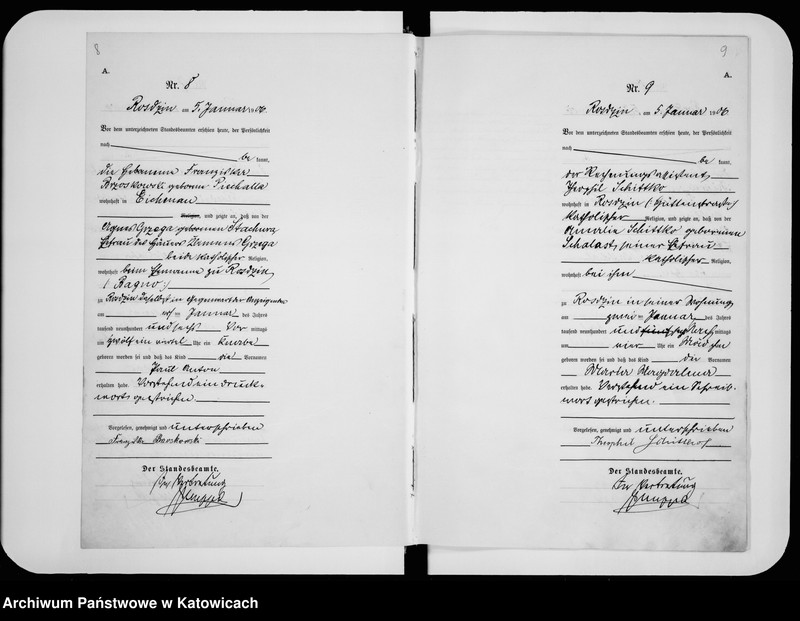 8
A.
Nr. 8
Rosdzin am 5. Januar 1906.
Vor dem unterzeichneten Standesbeamten erschien heute, der Persönlichkeit
nach be kannt,
die Hebamme Franziska
geborene Puchalla
wohnhaft in Eichenau
Religion, und zeigte an, daß von der
Agnes Grzega geborenen Stachura
Ehefrau des Grzega
beide katholischer Religion,
wohnhaft beim Ehemanne zu Rosdzin
(Bagno)
zu Rosdzin daselbst in Gegenwart der Anzeigenden
am Januar des Jahres
tausend neunhundert und sechs Vor mittags
um zwölf ein viertel Uhr ein Knabe
geboren worden sei und daß das Kind die Vornamen
Paul Anton
erhalten habe. Vorstehend ein Druck-
wort gestrichen.
Vorgelesen, genehmigt und unterschrieben
Der Standesbeamte.
In Vertretung
9
A.
Nr. 9
Rosdzin, am 5. Januar 1906.
Vor dem unterzeichneten Standesbeamten erschien heute, der Persönlichkeit
nach be kannt,
der Rechnungsassistent
Theophil Schittko
wohnhaft in Rosdzin (Hüttenstraße)
katholischer Religion, und zeigte an, daß von der
Amalie Schittko geborenen
Schalast, seiner Ehefrau
katholischer Religion,
wohnhaft bei ihm
zu Rosdzin in seiner Wohnung
am zwei Januar des Jahres
tausend neunhundert und sechs Nach mittags
um vier Uhr ein Mädchen
geboren worden sei und daß das Kind die Vornamen
Magdalena
erhalten habe. Vorstehend ein Schreib-
wort gestrichen.
Vorgelesen, genehmigt und unterschrieben
Theophil Schittko
Der Standesbeamte.
In Vertretung
Archiwum Państwowe w Katowicach